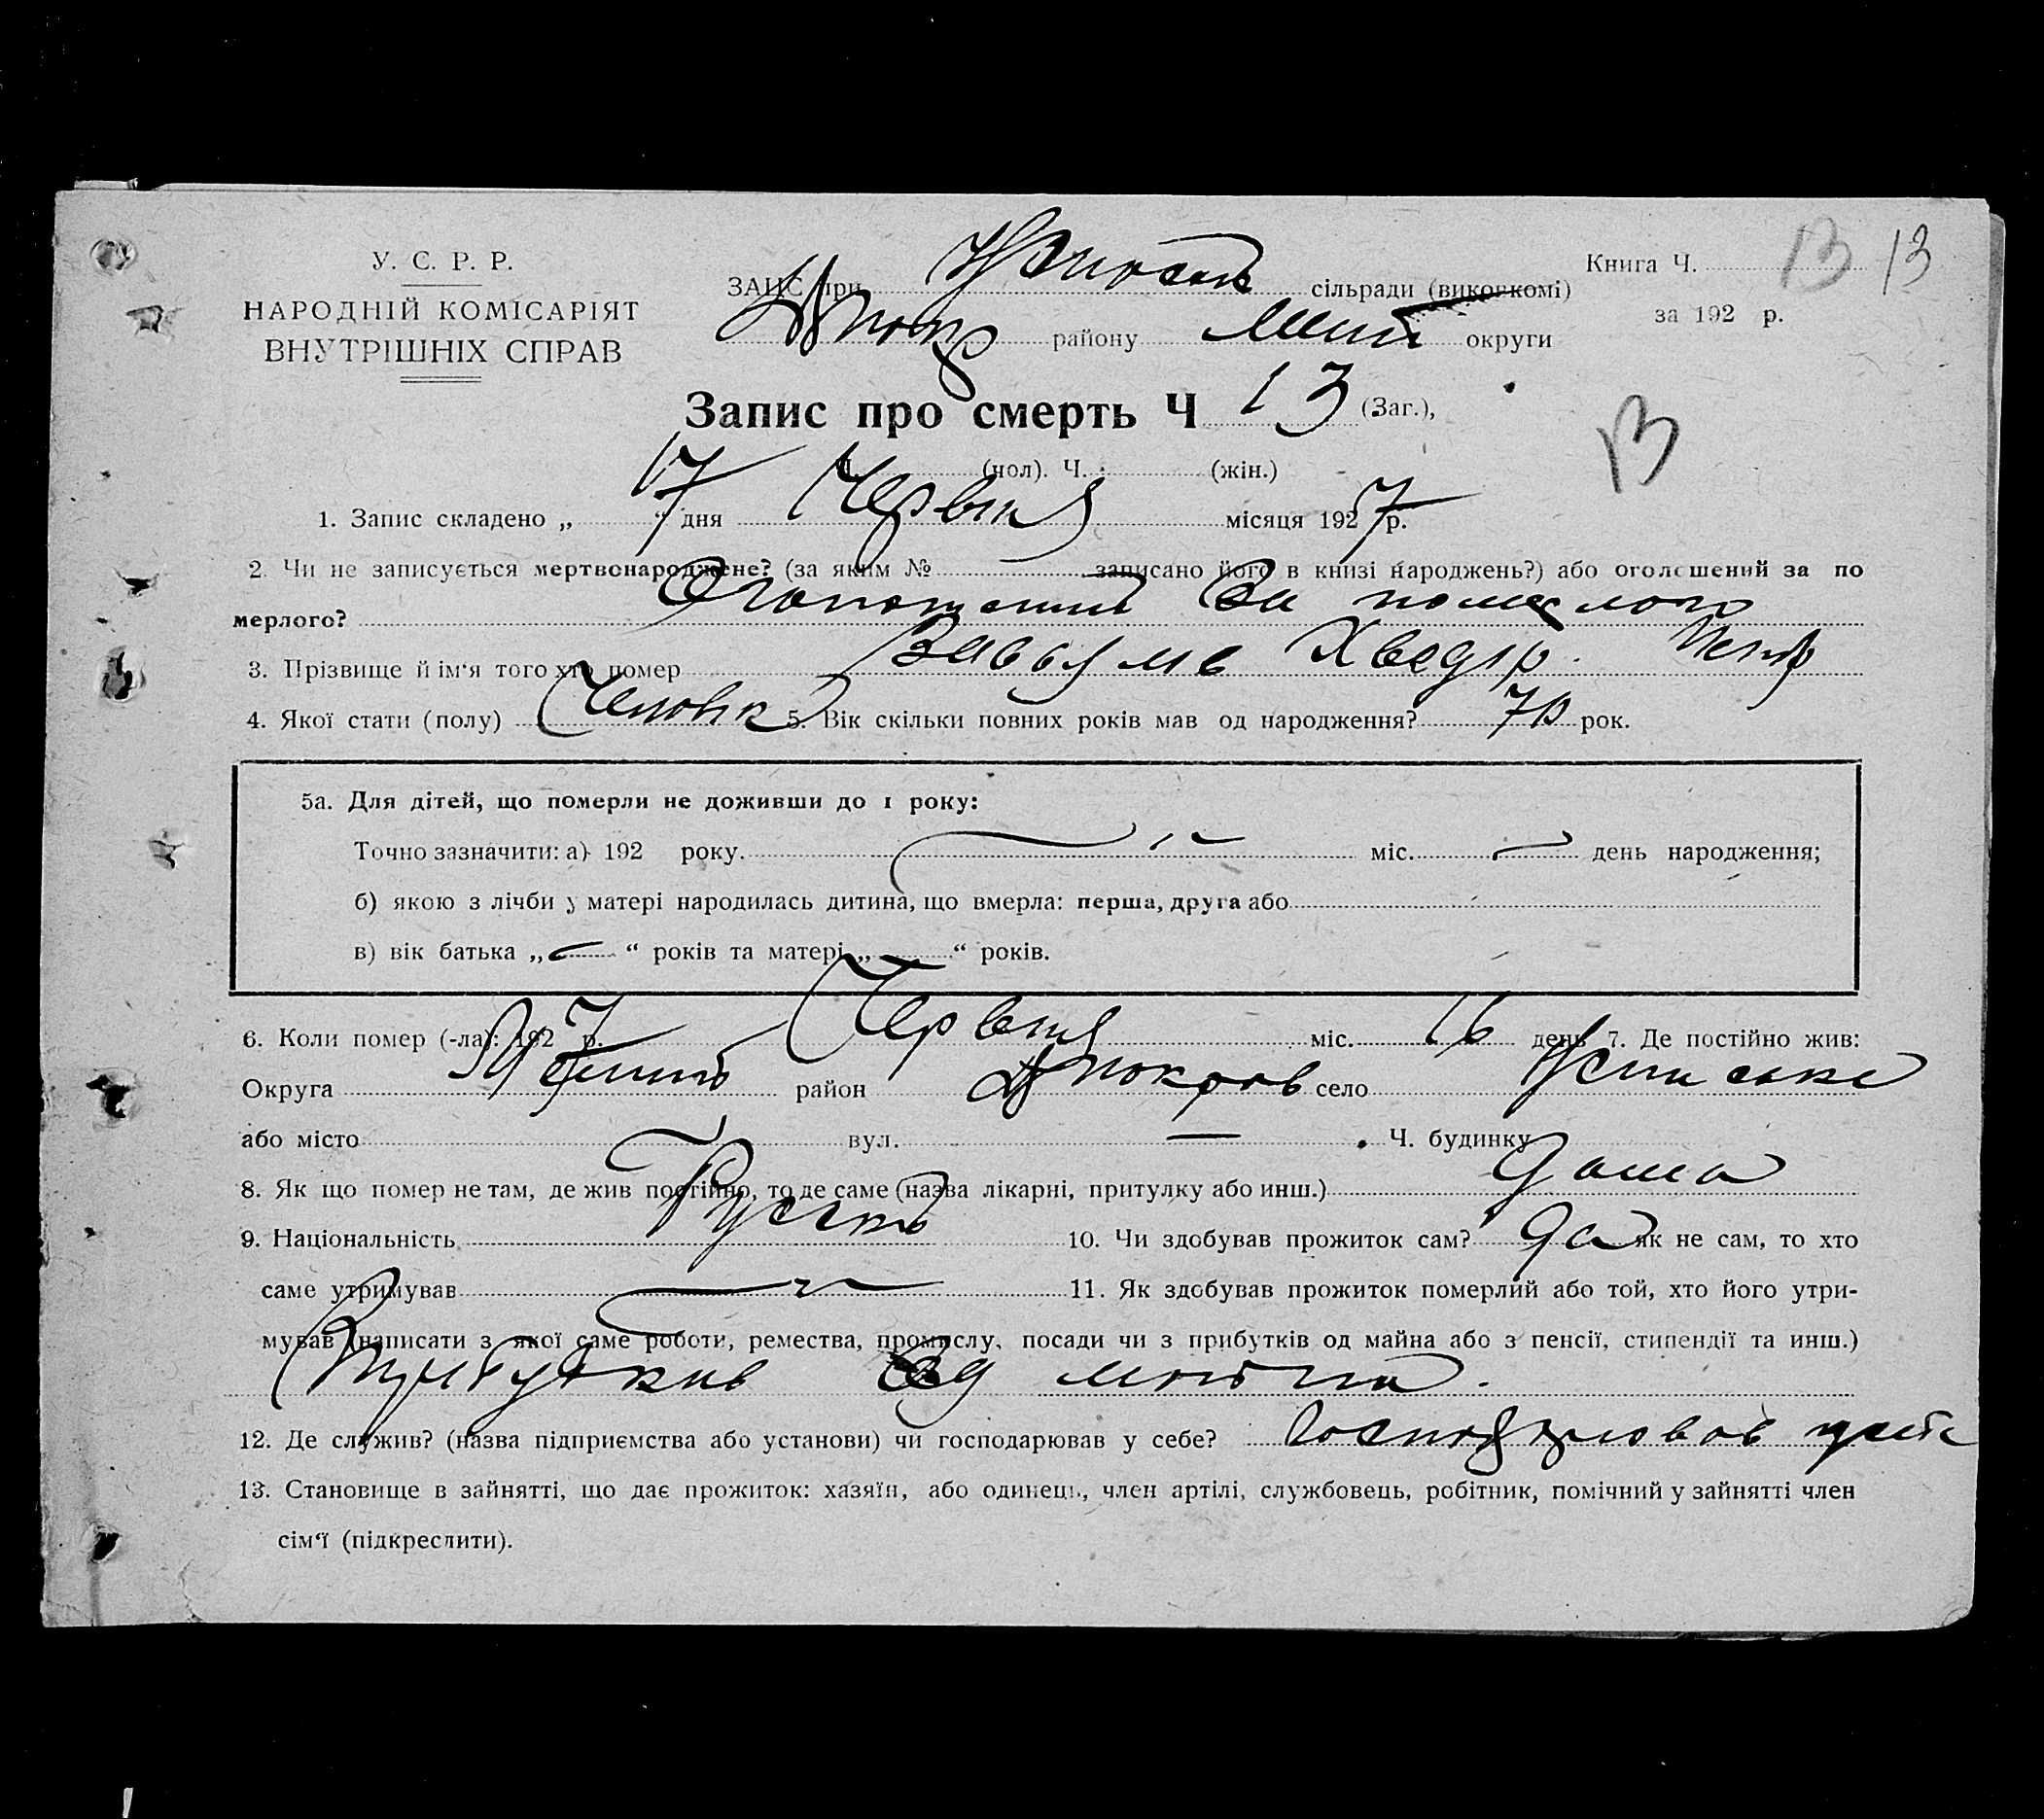 У. С. Р. Р.
НАРОДНІЙ КОМІСАРІЯТ
ВНУТРІШНІХ СПРАВ
ЗАЦС при сільради (виконкомі)
району округи
Книга Ч. 13 13
за 192 р.
Запис про смерть Ч 13 (Заг.),
13
Ч. (чол). Ч. (жін.)
1. Запис складено „17“ дня Червня місяця 1927 р.
2. Чи не записується мертвонароджене? (за яким № записано його в книзі народжень?) або оголошений за по
мерлого? Оголошений за померлого
3. Прізвище й ім'я того хто помер Хведір Петр
4. Якої стати (полу) Чоловік 5. Вік скільки повних років мав од народження? 70 рок.
5а. Для дітей, що померли не доживши до 1 року:
Точно зазначити: а) 192 року. міс. день народження;
б) якою з лічби у матері народилась дитина, що вмерла: перша, друга або
в) вік батька „ “ років та матері „ “ років.
6. Коли помер (-ла): 1927 р. Червня міс. 16 день 7. Де постійно жив:
Округа район село
або місто вул. — Ч. будинку
8. Як що помер не там, де жив постійно, то де саме (назва лікарні, притулку або инш.) дома
9. Національність Руський 10. Чи здобував прожиток сам? да як не сам, то хто
саме утримував 11. Як здобував прожиток померлий або той, хто його утри-
мував (написати з якої саме роботи, ремества, промислу, посади чи з прибутків од майна або з пенсії, стипендії та инш.)
Прибутків од майна.
12. Де служив? (назва підприємства або установи) чи господарював у себе? Господарював
13. Становище в зайнятті, що дає прожиток: хазяїн, або одинець, член артілі, службовець, робітник, помічний у зайнятті член
сім'ї (підкреслити).